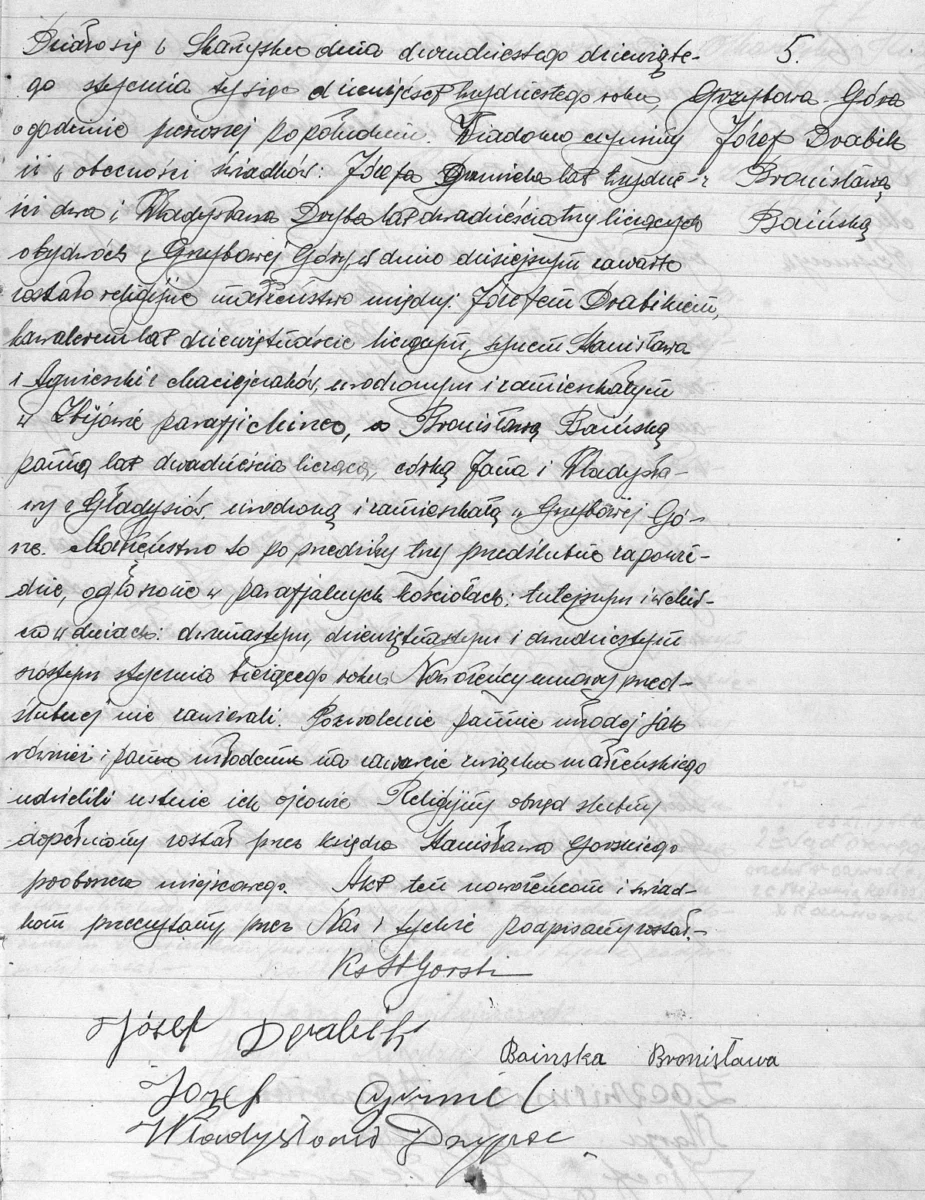 Działo się w Skarżysku dnia dwudziestego dziewiąte-
go stycznia tysiąc dziewięćset trzydziestego roku,
o godzinie pierwszej popołudniu. Wiadomo czynimy
iż w obecności świadków: Józefa lat trzydzie-
ści dwa i Władysława lat dwadzieścia trzy liczących
obydwóch z Grzybowej Góry, w dniu dzisiejszym zawarte
zostało religijne małżeństwo między: Józefem Drabikiem,
kawalerem lat dziewiętnaście liczącym, synem Stanisława
i Agnieszki z Maciejczaków, urodzonym i zamieszkałym
w Zbijowie parafji Mirzec, a Bronisławą Baińską
panną lat dwadzieścia liczącą, córką Jana i Władysła-
wy z Gładysiów, urodzoną i zamieszkałą w Grzybowej Gó-
rze. Małżeństwo to poprzedziły trzy przedślubne zapowie-
dzie, ogłoszone w parafjalnych kościołach: tutejszym i w
w dniach: dwunastym, dziewiętnastym i dwudziestym
szóstym stycznia bieżącego roku. Nowożeńcy umowy przed-
ślubnej nie zawierali. Pozwolenie pannie młodej jak
również i panu młodemu na zawarcie związku małżeńskiego
udzielili ustnie ich ojcowie Religijny obrzęd ślubny
dopełniony został przez księdza Stanisława Gorskiego
proboszcza miejscowego. Akt ten nowożeńcom i świad-
kom przeczytany, przez Nas i tychże podpisany został.-
5.
Grzybowa Góra
Józef Drabik
z Bronisławą
Baińską
Ks St Gorski
Józef Drabik
Bainska Bronisława
Józef
Władysław